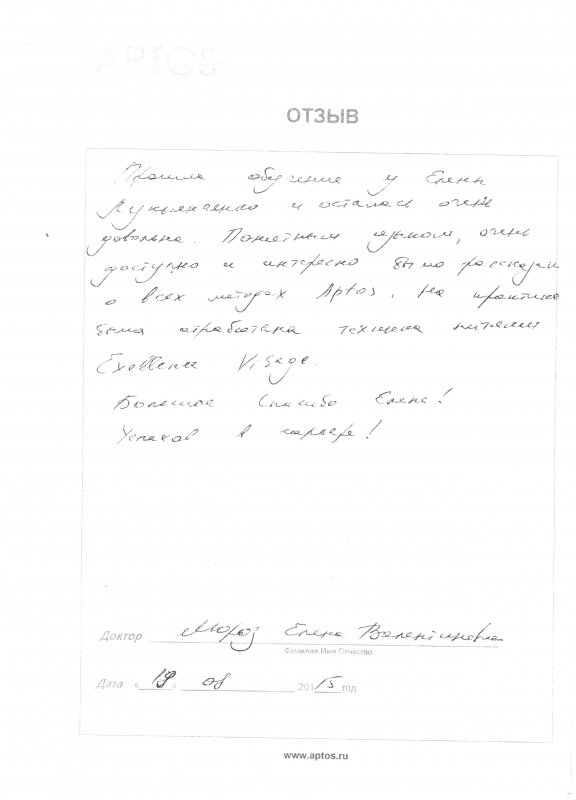 APTOS
ОТЗЫВ
Прошла обучение у Елены
Лукьянченко и осталась очень
довольна. Понятным языком, очень
доступно и интересно было рассказан
о всех методах Aptos. На практике
была отработана техника нитями
Exellence Visage.
Большое спасибо Елене!
Успехов в карьере!
Доктор Мороз Елена Валентиновна
Фамилия Имя Отчество
Дата «19» 08 2015 год
www.aptos.ru